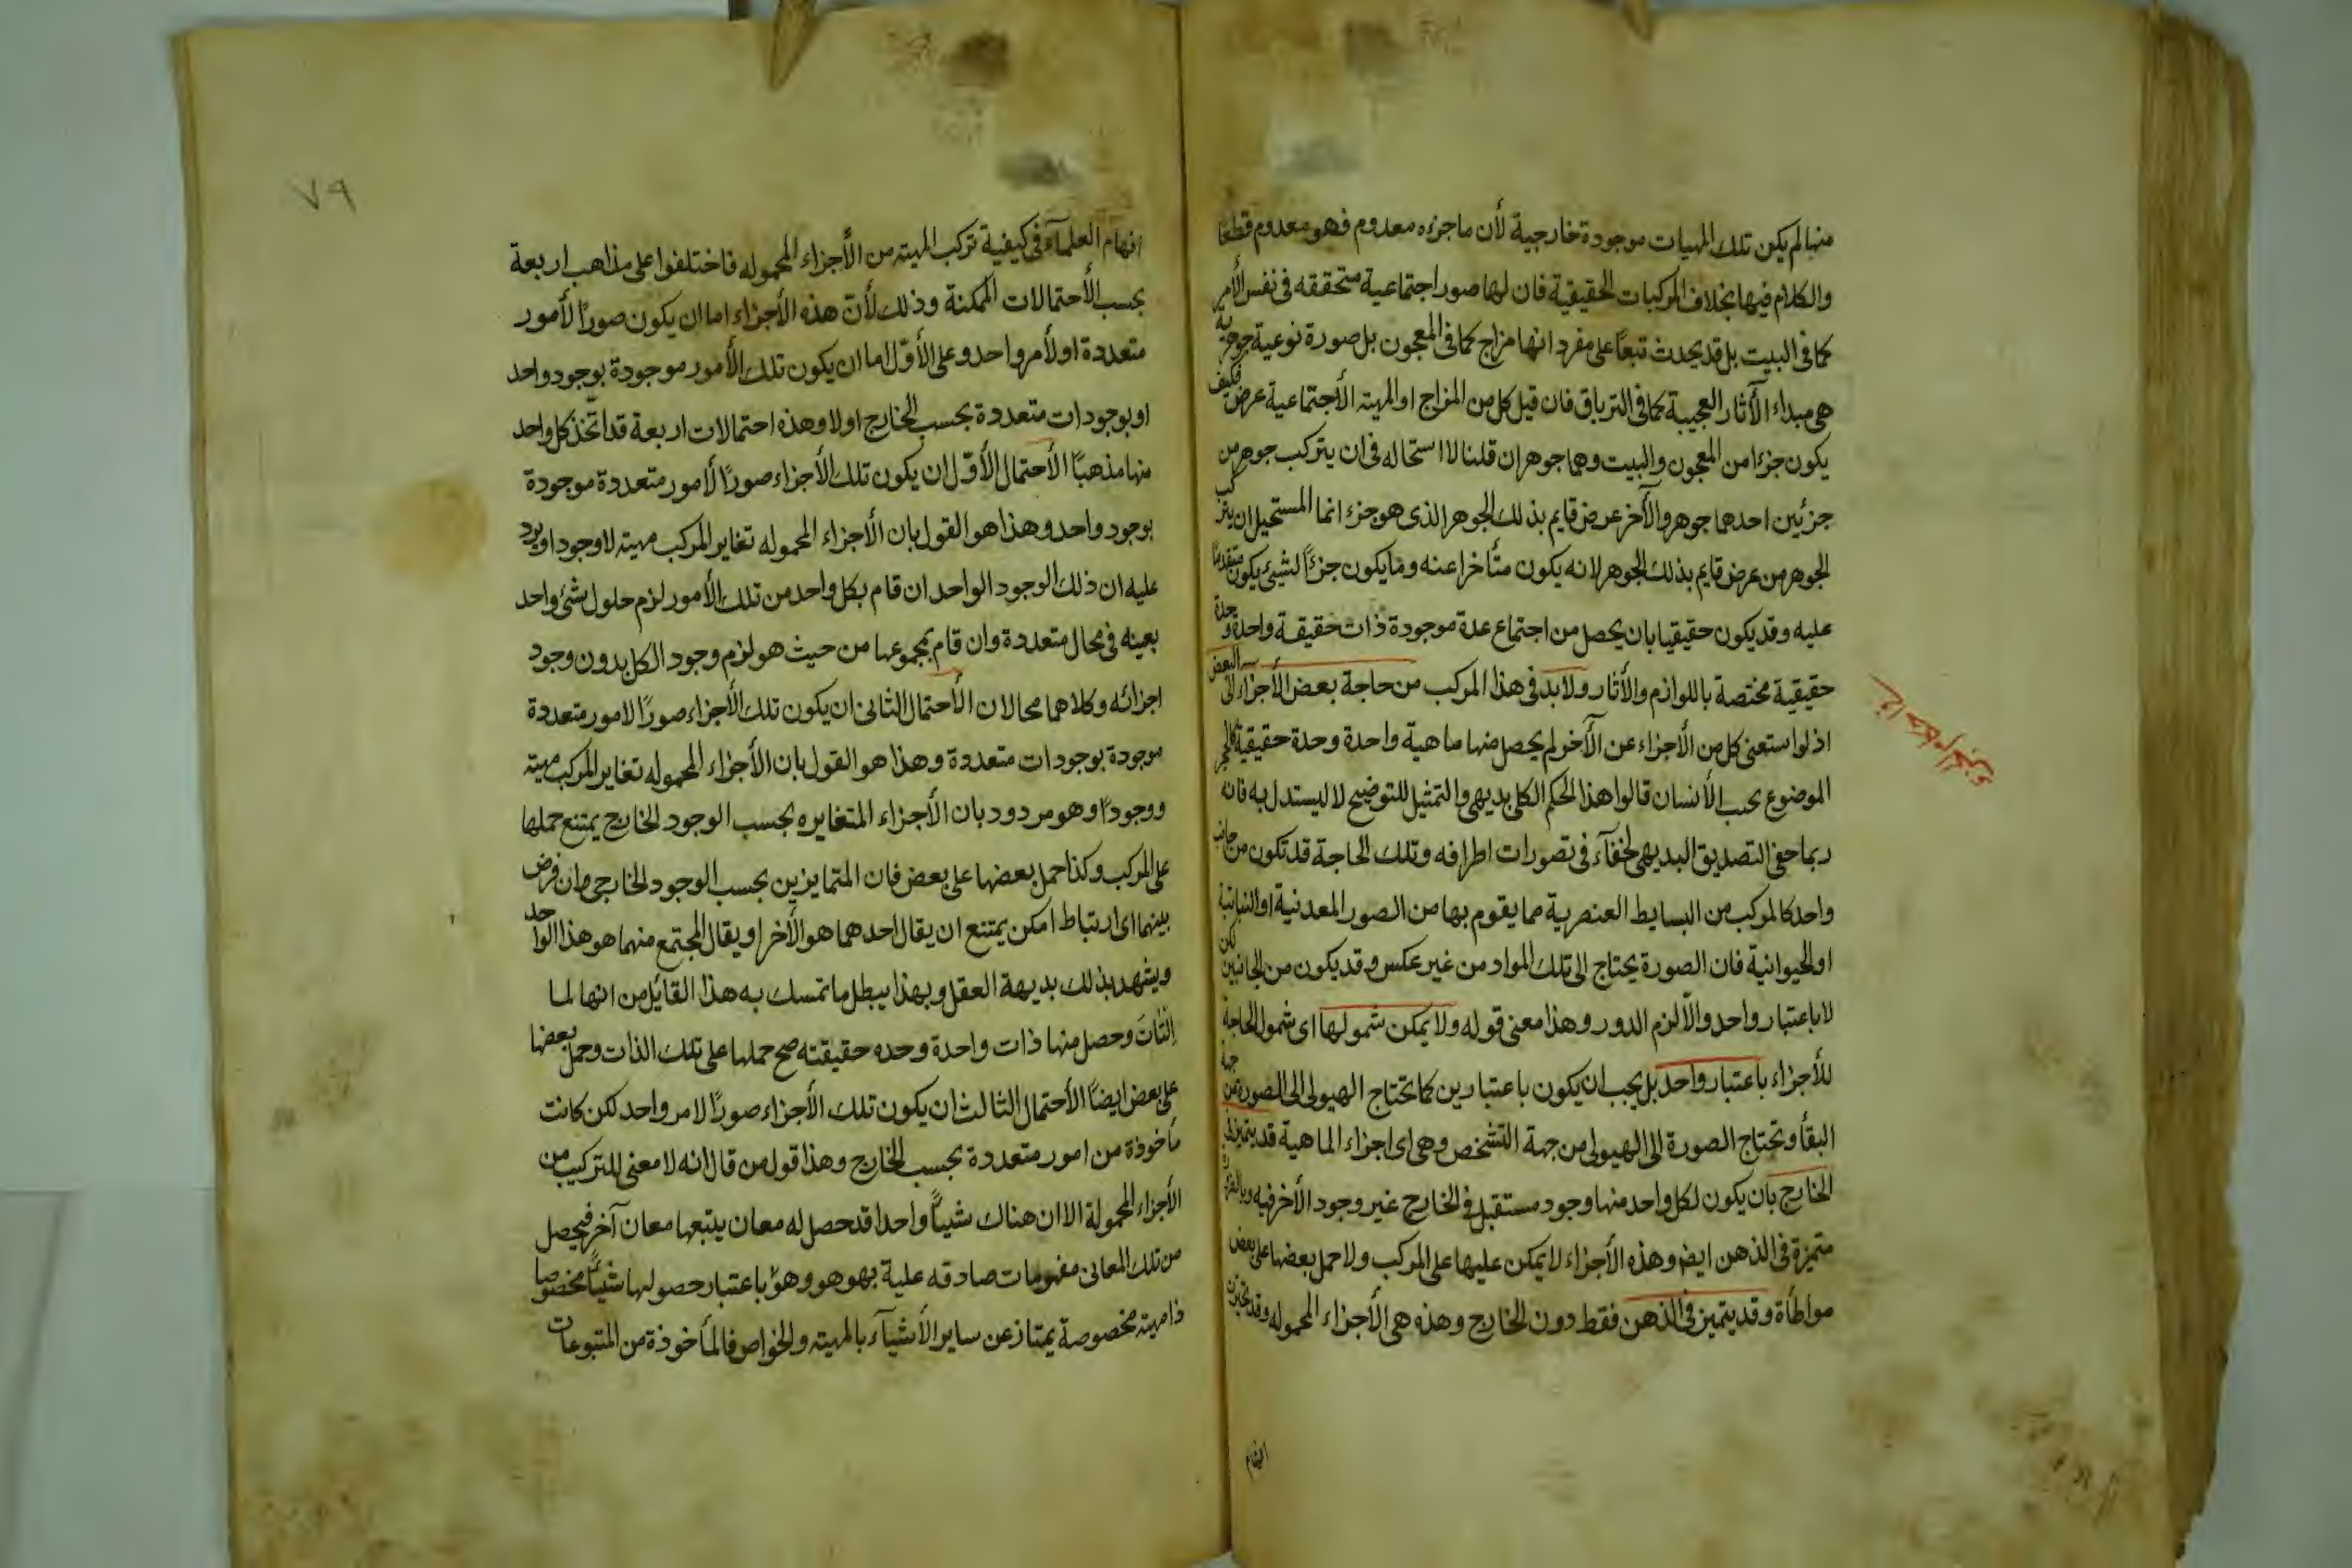 منها لم يكن تلك المهيات موجودة خارجية لأن ما جزءه معدوم فهو معدوم قطعًا
والكلام فيها بخلاف المركبات الحقيقية فان لها صور اجتماعية متحققه فى نفس الأمر
كما فى البيت بل قد يحدث تبعًا على مفرد انها مزاج كما فى المعجون بل صورة نوعية جوهرية
هى مبداء الآثار العجيبة كما فى الترياق فان قيل كل من المزاج او المهيته الأجتماعية عرض فكيف
يكون جزءا من المعجون والبيت وهما جوهران قلنا لا استحاله فى ان يتركب جوهر من
جزئين احدهما جوهر والآخر عرض قايم بذلك الجوهر الذى هو جزء انما المستحيل ان يتركب
الجوهر من عرض قايم بذلك الجوهر لانه يكون متأخرا عنه وما يكون جزءًا لشيئ يكون متقدمًا
عليه وقد يكون حقيقيا بان يحصل من اجتماع عدة موجودة ذات حقيقة واحدة وحدة
حقيقية مختصة باللوازم والأثار ولابد فى هذا المركب من حاجة بعض الأجزاء الى البعض
اذ لو استغنى كل من الأجزاء عن الآخر لم يحصل منها ماهية واحدة وحدة حقيقية كالحجر
الموضوع بجنب الأنسان قالوا هذا الحكم الكلى بديهى والتمثيل للتوضيح لا ليستدل به فانه
ربما خفى التصديق البديهى لخفآء فى تصورات اطرافه وتلك الحاجة قد تكون من جانب
واحد كالمركب من البسايط العنصرية مما يقوم بها من الصور المعدنية او النباتية
او الحيوانية فان الصورة يحتاج الى تلك المواد من غير عكس وقد يكون من الجانبين لكن
لا باعتبار واحد والّا لزم الدور وهذا معنى قوله ولا يمكن شمولها اى شمول الحاجة
للأجزاء باعتبار واحد بل يجب ان يكون باعتبارين كما تحتاج الهيولى الى الصورة من جهة
البقأ وتحتاج الصورة الى الهيولى من جهة التشخص وهى اى اجزاء الماهية قد يتميز فى
الخارج بان يكون لكل واحد منها وجود مستقبل فى الخارج غير وجود الأخر فيه
متميزة فى الذهن ايضا وهذه الأجزاء لا يمكن عليها على المركب ولا حمل بعضها على بعض
مواطأة وقد يتميز فى الذهن فقط دون الخارج وهذه هى الأجزاء المحموله وقد تحير
٧٩
افهام العلمآء فى كيفية تركب المهيته من الأجزاء المحموله فاختلفوا على مذاهب اربعة
بحسب الأحتمالات الممكنة وذلك لأن هذه الأجزاء اما ان يكون صورًا لأمور
متعددة او لأمر واحد وعلى الأوّل اما ان يكون تلك الأمور موجودة بوجود واحد
او بوجودات متعددة بحسب الخارج اولا وهذه احتمالات اربعة قد اتخذ كل واحد
منها مذهبًا الأحتمال الأوّل ان يكون تلك الأجزاء صورًا لأمور متعددة موجودة
بوجود واحد وهذا هو القول بان الأجزاء المحموله تغاير المركب مهيته لا وجودا ويرد
عليه ان ذلك الوجود الواحد ان قام بكل واحد من تلك الأمور لزم حلول شئ واحد
بعينه فى محال متعددة وان قام بمجموعها من حيث هو لزم وجود الكل بدون وجود
اجزائه وكلاهما محالان الأحتمال الثانى ان يكون تلك الأجزاء صورًا لامور متعددة
موجودة بوجودات متعددة وهذا هو القول بان الأجزاء المحموله تغاير المركب مهيته
ووجودًا وهو مردود بان الأجزاء المتغايره بحسب الوجود الخارج يمتنع حملها
على المركب وكذا حمل بعضها على بعض فان المتمايزين بحسب الوجود الخارجى وان فرض
بينهما اى ارتباط امكن يمتنع ان يقال احدهما هو الأخر او يقال المجتمع منهما هو هذا الواحد
ويشهد بذلك بديهة العقل وبهذا يبطل ما تمسك به هذا القائل من انها لما
التأت وحصل منها ذات واحدة وحده حقيقته صح حملها على تلك الذات وحمل بعضها
على بعض ايضًا الأحتمال الثالث ان يكون تلك الأجزاء صورًا لامر واحد لكن كانت
مأخوذة من امور متعددة بحسب الخارج وهذا قول من قال انه لا معنى للتركيب من
الأجزاء المحمولة الا ان هناك شيئًا واحدا قد حصل له معان يتبعها معان آخر فيحصل
من تلك المعانى مفهومات صادقه علية بهو هو وهو باعتبار حصولها شيئًا مخصوصا
ذا مهيته مخصوصة يمتاز عن ساير الأشيآء بالمهيته والخواص فالمأخوذة من المتبوعات